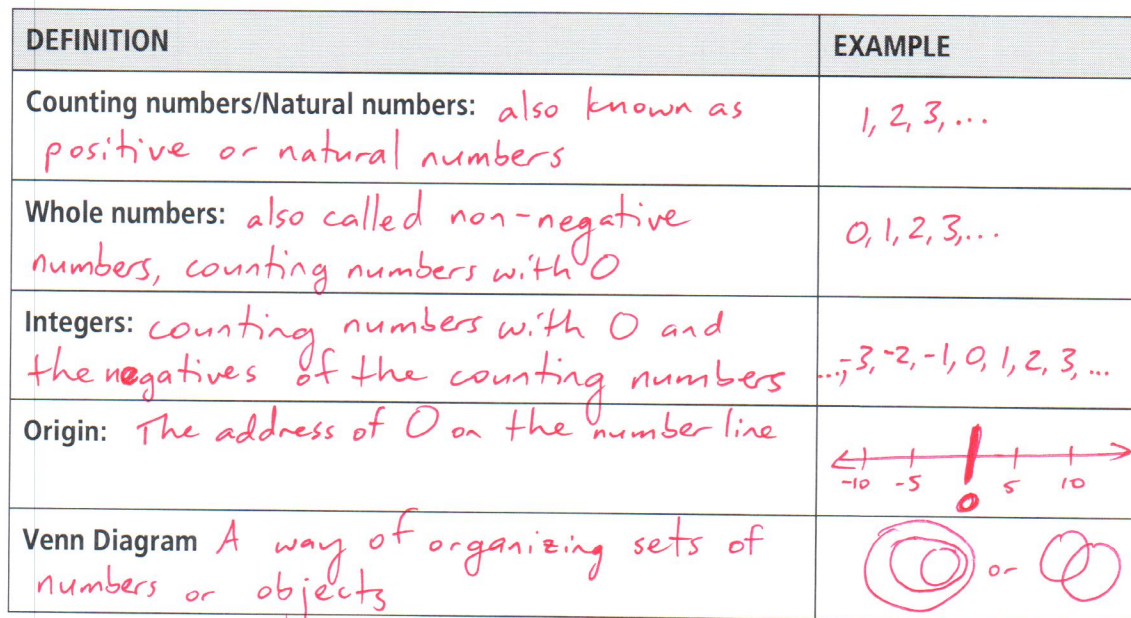 DEFINITION
EXAMPLE
Counting numbers/Natural numbers: also known as
positive or natural numbers
1, 2, 3, ...
Whole numbers: also called non-negative
numbers, counting numbers with 0
0, 1, 2, 3, ...
Integers: counting numbers with 0 and
the negatives of the counting numbers
..., -3, -2, -1, 0, 1, 2, 3, ...
Origin: The address of 0 on the number line
-10 -5 0 5 10
Venn Diagram A way of organizing sets of
numbers or objects
or